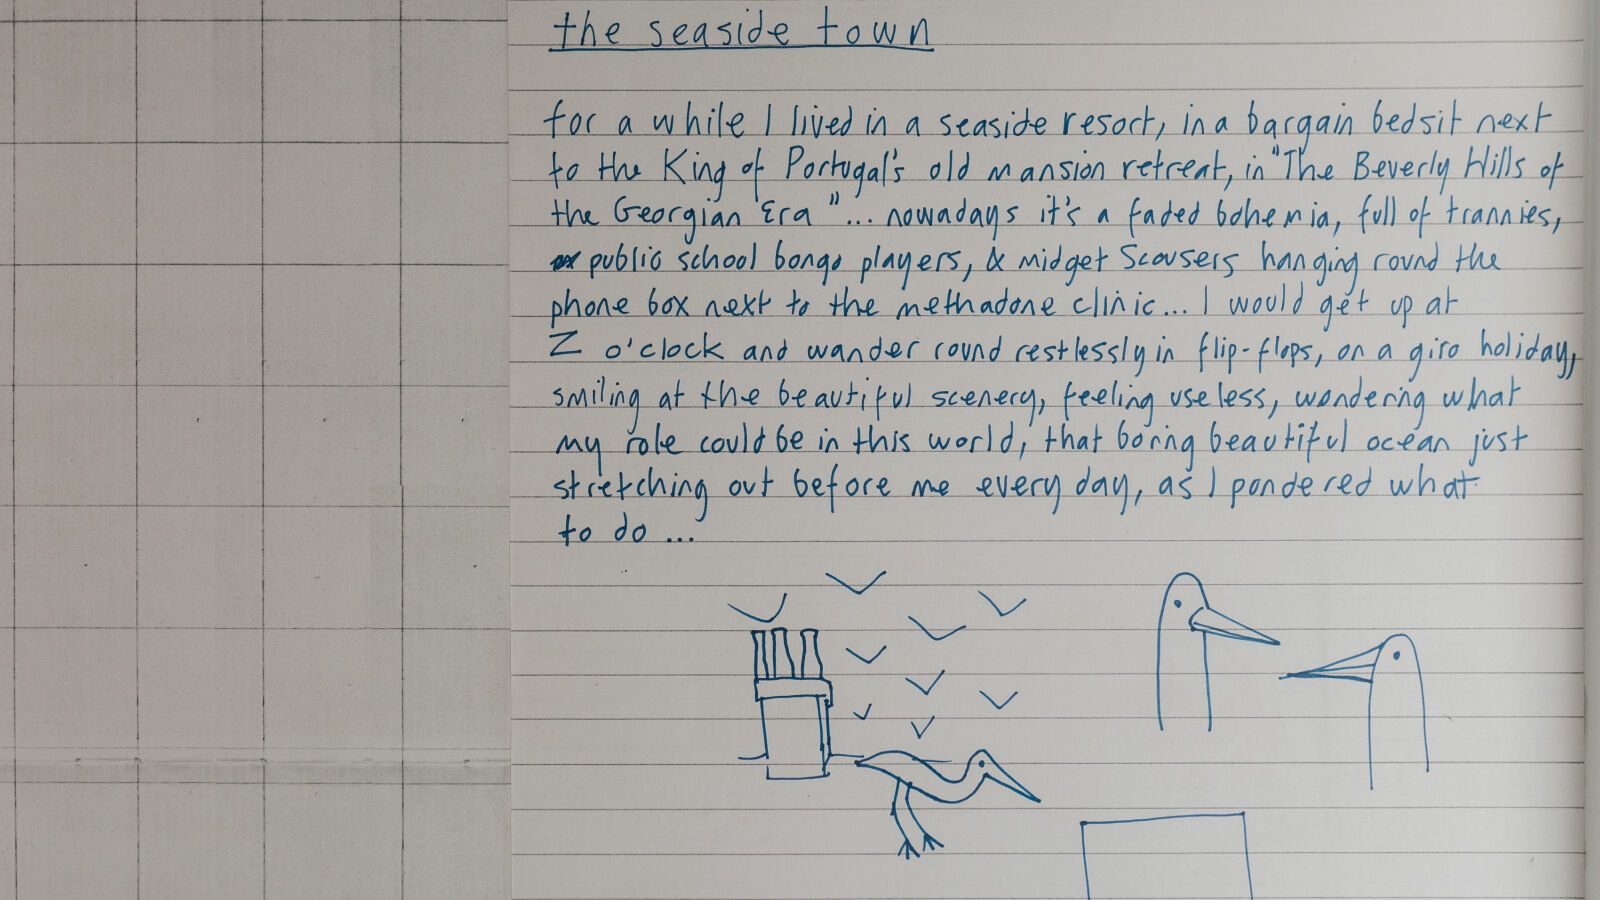 the seaside town
for a while I lived in a seaside resort, in a bargain bedsit next
to the King of Portugal's old mansion retreat, in "The Beverly Hills of
the Georgian Era"... nowadays it's a faded bohemia, full of trannies,
public school bongo players, & midget Scousers hanging round the
phone box next to the methadone clinic... I would get up at
Z o'clock and wander round restlessly in flip-flops, on a giro holiday,
smiling at the beautiful scenery, feeling useless, wondering what
my role could be in this world, that boring beautiful ocean just
stretching out before me every day, as I pondered what
to do...